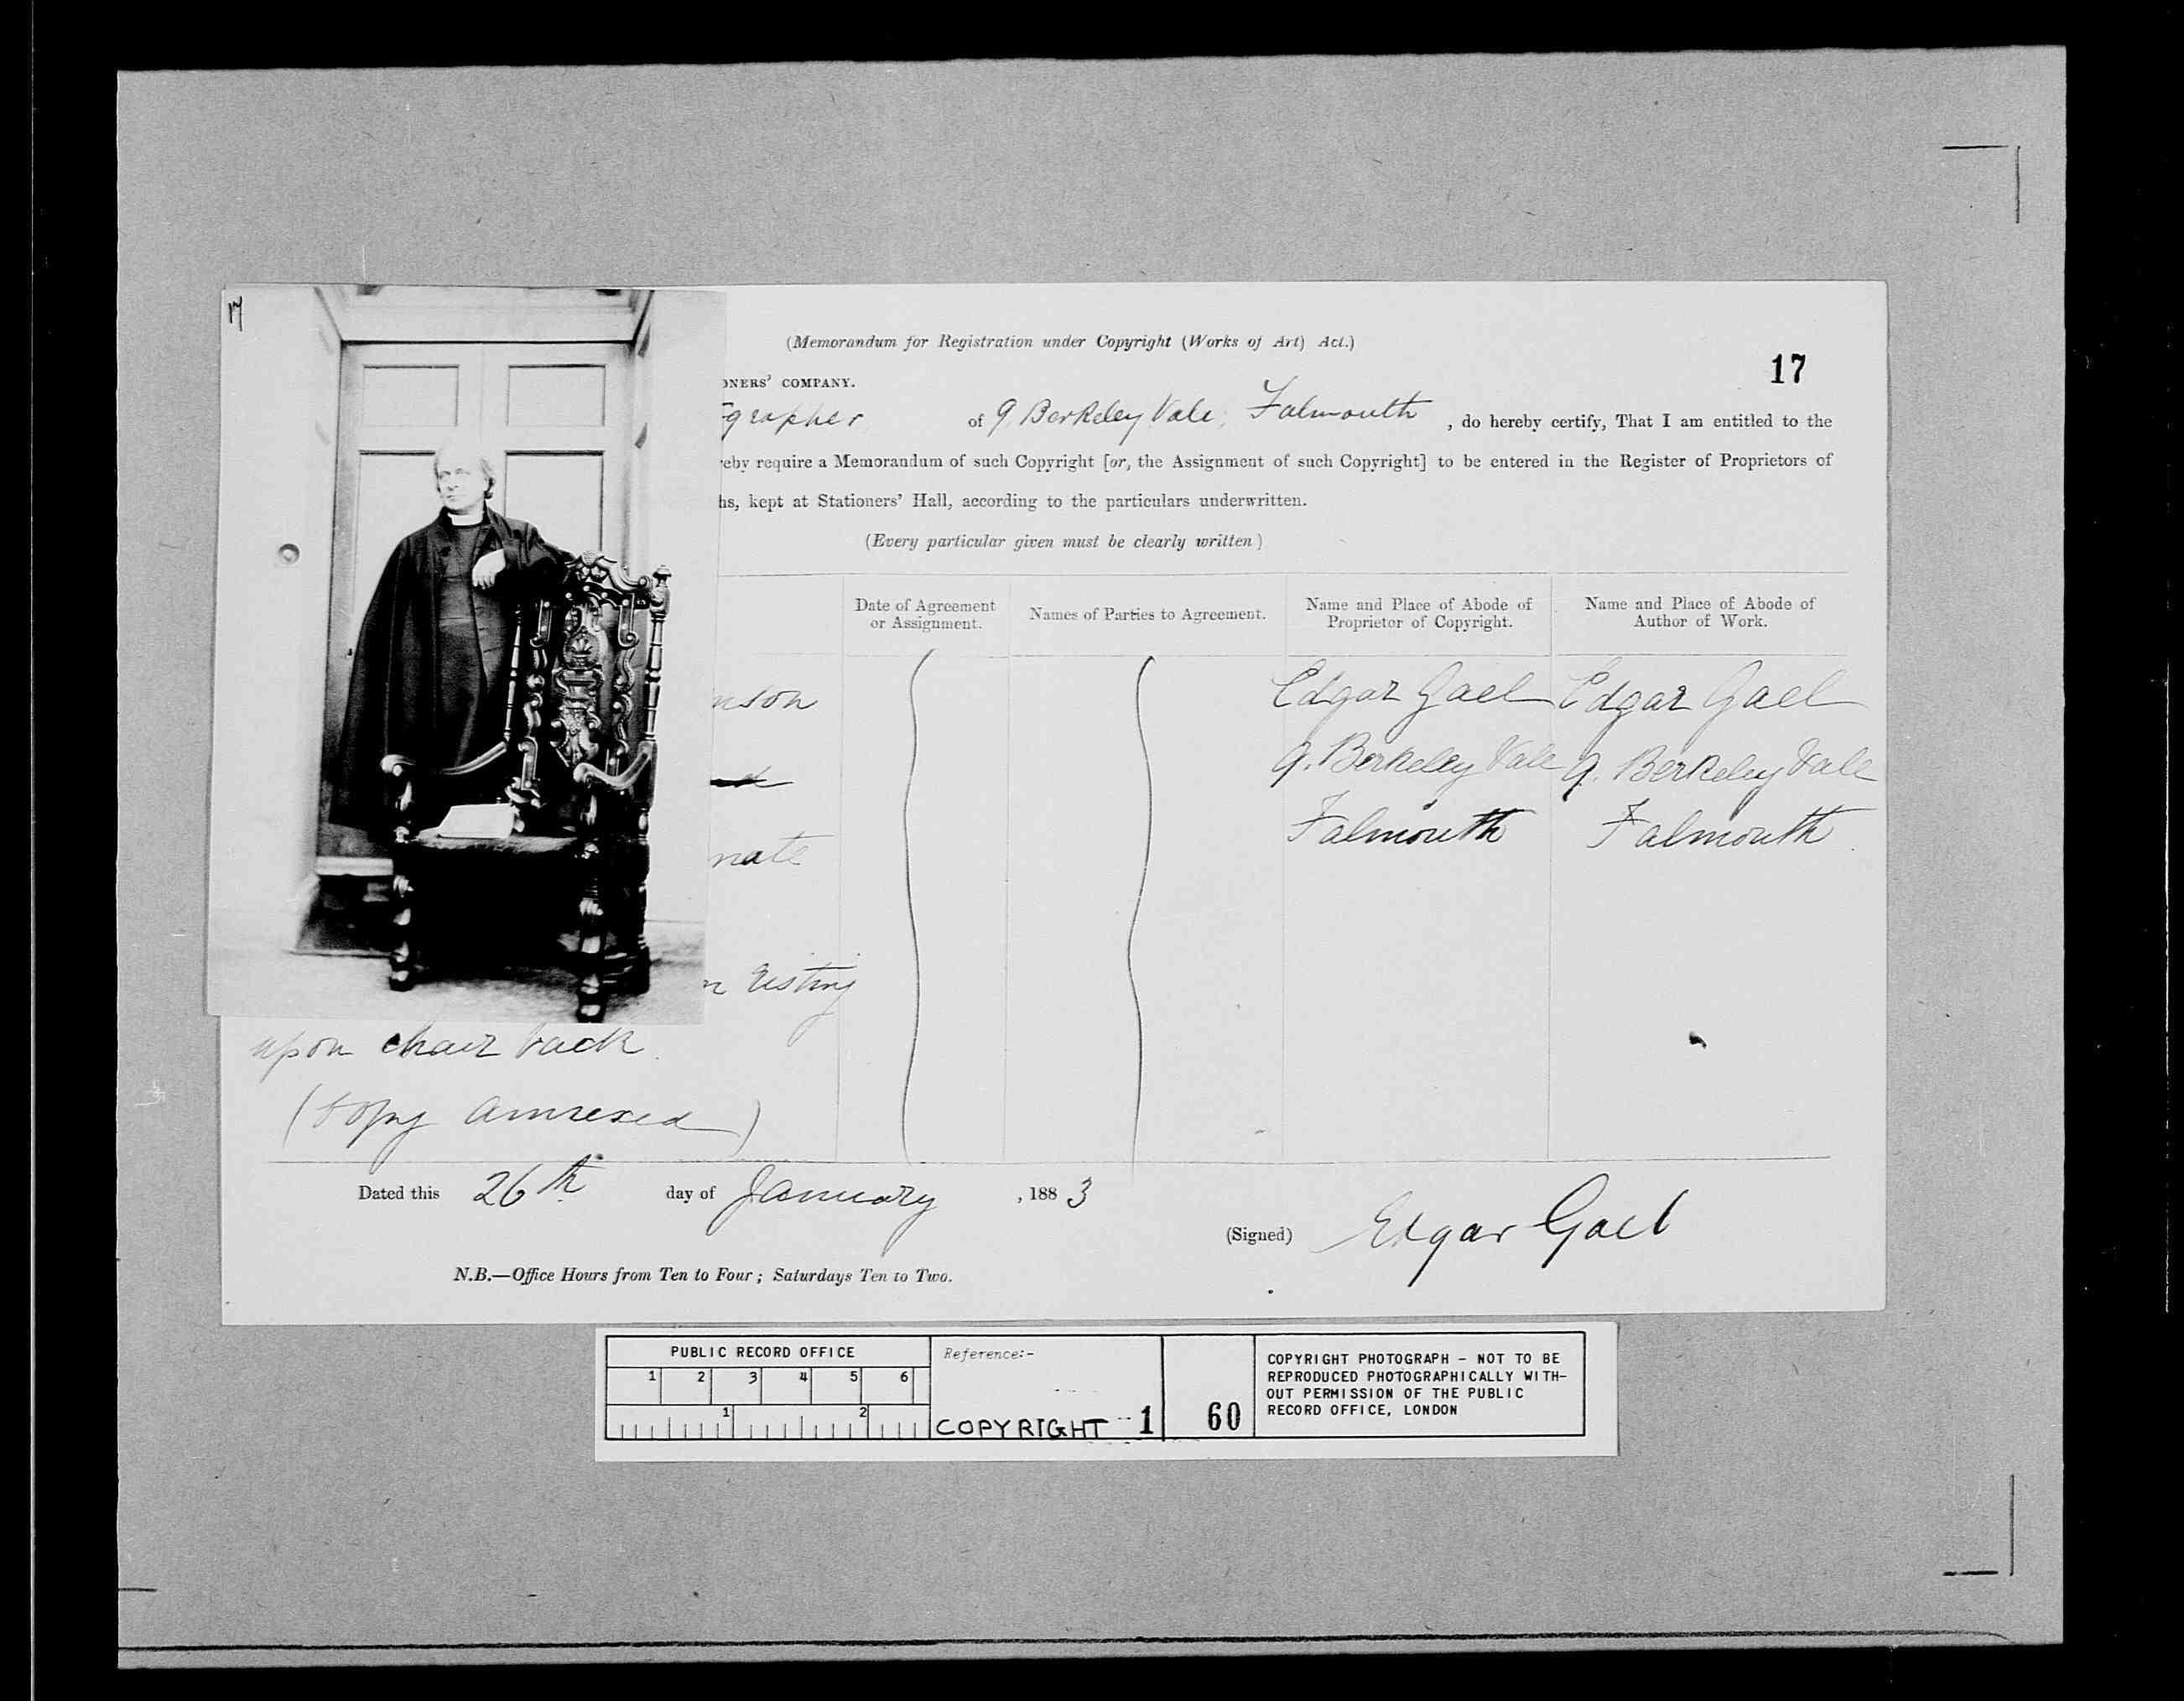 17
(Memorandum for Registration under Copyright (Works of Art) Act.)
17
ONERS' COMPANY.
grapher of 9 Berkeley Vale, Falmouth , do hereby certify, That I am entitled to the
reby require a Memorandum of such Copyright [or, the Assignment of such Copyright] to be entered in the Register of Proprietors of
hs, kept at Stationers' Hall, according to the particulars underwritten.
(Every particular given must be clearly written)
Date of Agreement
or Assignment.
Names of Parties to Agreement.
Name and Place of Abode of
Proprietor of Copyright.
Name and Place of Abode of
Author of Work.
nson
nate
resting
upon chair back.
(Copy annexed)
Edgar Gael
9. Berkeley Vale
Falmouth
Edgar Gael
9. Berkeley Vale
Falmouth
Dated this 26th day of January , 1883
(Signed) Edgar Gael
N.B.—Office Hours from Ten to Four; Saturdays Ten to Two.
PUBLIC RECORD OFFICE
1 2 3 4 5 6
1 2
Reference:-
COPYRIGHT 1 60
COPYRIGHT PHOTOGRAPH - NOT TO BE
REPRODUCED PHOTOGRAPHICALLY WITH-
OUT PERMISSION OF THE PUBLIC
RECORD OFFICE, LONDON